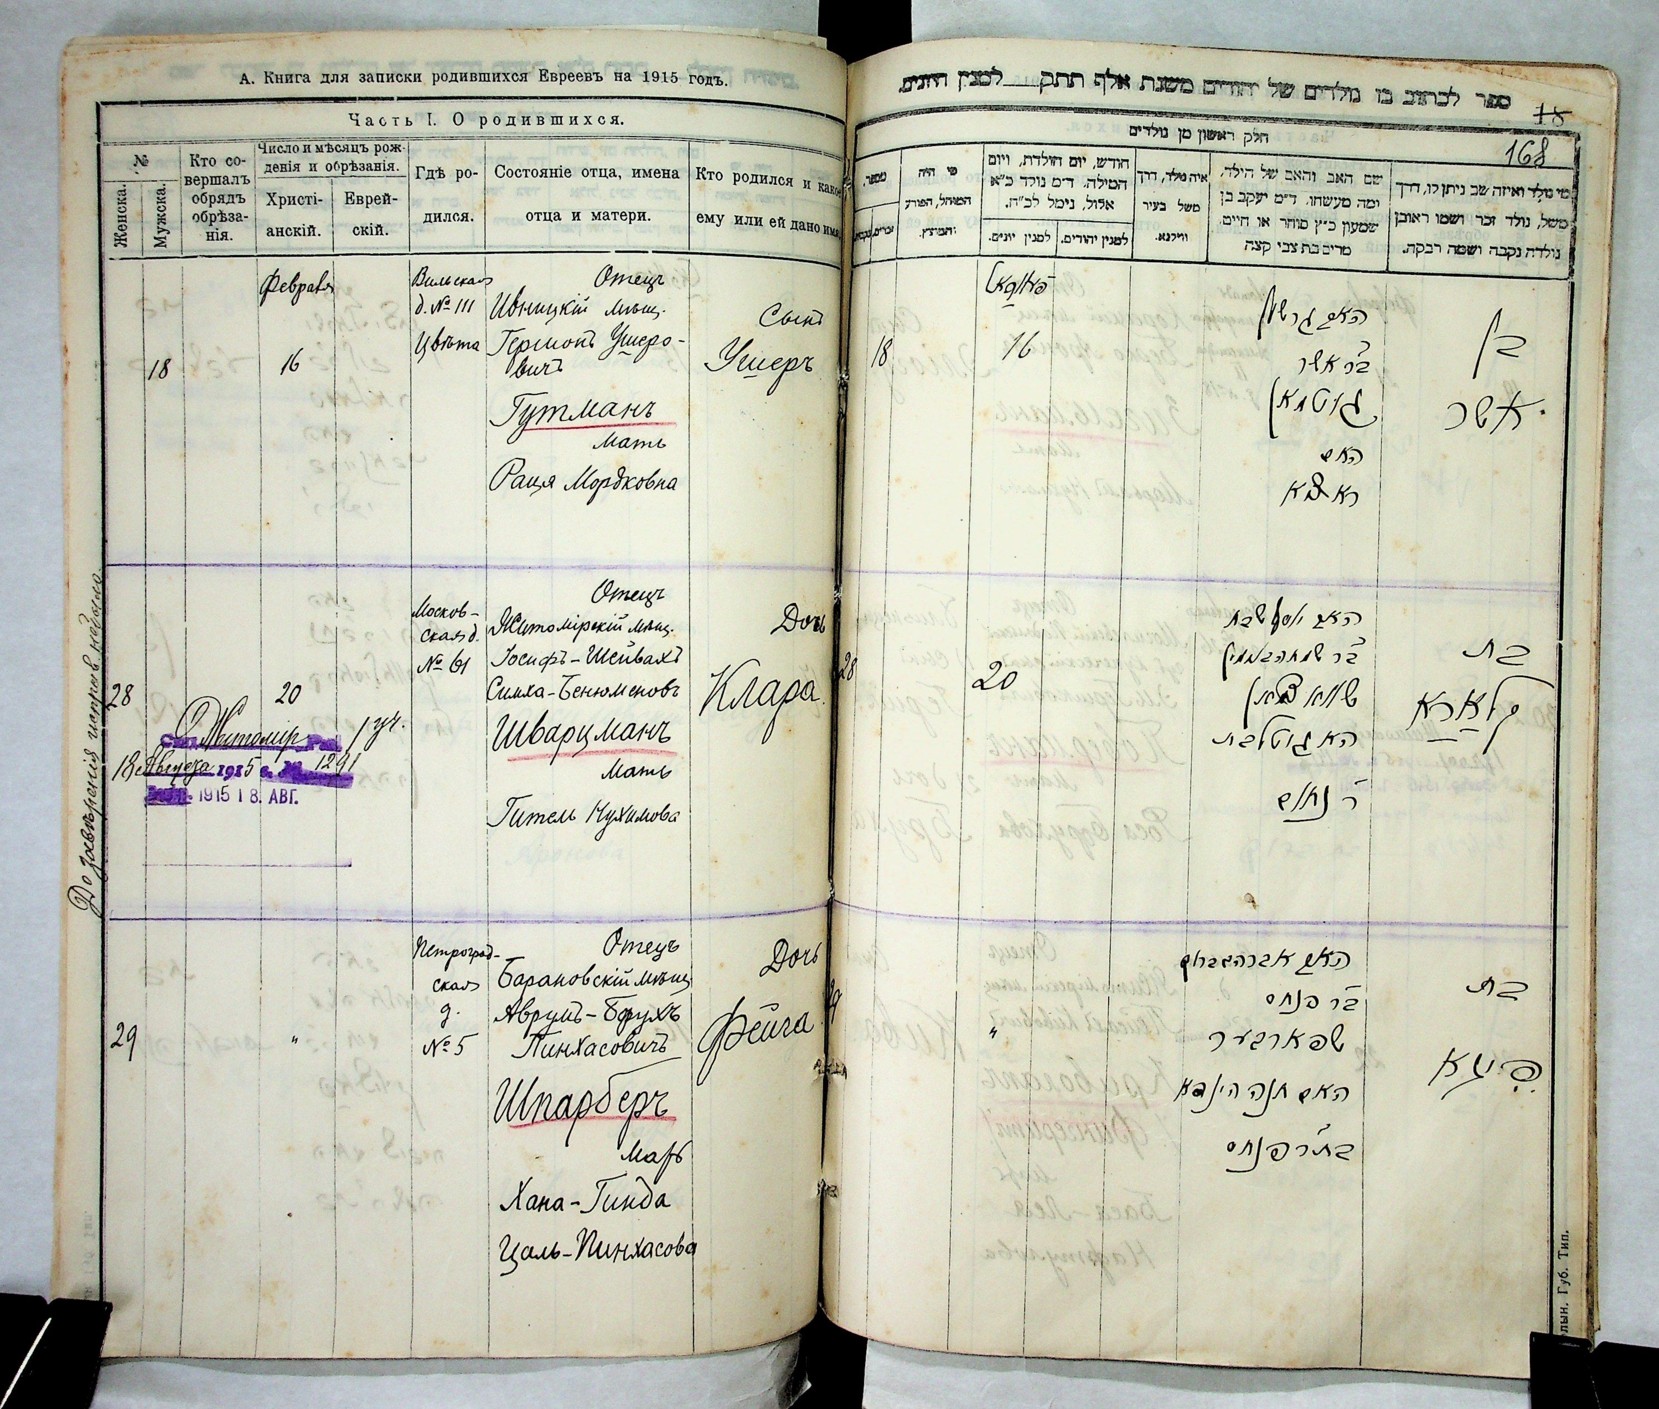 А. Книга для записки родившихся Евреевъ на 1915 годъ.
Часть I. О родившихся.
№
Женска.
Мужска.
Кто со-
вершалъ
обрядъ
обрѣза-
нія.
Число и мѣсяцъ рож-
денія и обрѣзанія.
Христі-
анскій.
Еврей-
скій.
Гдѣ ро-
дился.
Состояніе отца, имена
отца и матери.
Кто родился и како
ему или ей дано имя
Февраля
18
16
Вильская
д. № 111
Цвѣта
Отецъ
Ивницкій мѣщ.
Германъ Ушеро-
вичъ
Гутманъ
Мать
Рація Мордковна
Сынъ
Ушеръ
28
20
Москов-
ская д.
№ 61
Отецъ
Житомірскій мѣщ.
Іосифъ-Шейвахъ
Симха-Бенюменовъ
Шварцманъ
Мать
Гитель Нухимова
Дочь
Клара
Житомір
1 уч.
18 Августа 1915 г. № 1291
1915 18. АВГ.
29
"
Петроград-
ская
д.
№ 5
Отецъ
Барановскій мѣщ
Аврумъ-Борухъ
Пинхасовичъ
Шпарберъ
Мать
Хана-Гинда
Цаль-Пинхасова
Дочь
Фейга
ספר לכתוב בו נולדים של יהודים משנת אלף תתק לממנין היונים.
78
168
חלק ראשון מן נולדים
מי נולד ואיזה שב ניתן לו, דרך
משל, נולד זכר ושמו ראובן
נולדה נקבה ושמה רבקה.
שם האב והאם של הילד,
ומה מעשהו. ד"מ יעקב בן
שמעון כ"ץ סוחר או חיים
מרים בת צבי קצה
איה נולד, דרך
משל בעיר
ווילנא.
חודש, יום הולדת, ויום
המילה. ד"מ נולד כ"א
אלול, נימל לכ"ח.
למנין יהודים.
למנין יונים.
מי היה
המוהל, הפורע
והמוצץ.
מספר.
זכרים.
בן
אשר
האב גרשון
ב"ר אשר
גוטמאן
האם
ראציא
16
18
בת
קלארא
האב יוסף שבח
ב"ר שמחה בנימין
שווארצמאן
האם גוטל בת
ר' נחום
20
28
בת
פייגא
האב אברהם ברוך
ב"ר פנחס
שפארבער
האם חנה הינדא
בת ר' פנחס
"
29
лын. Губ. Тип.